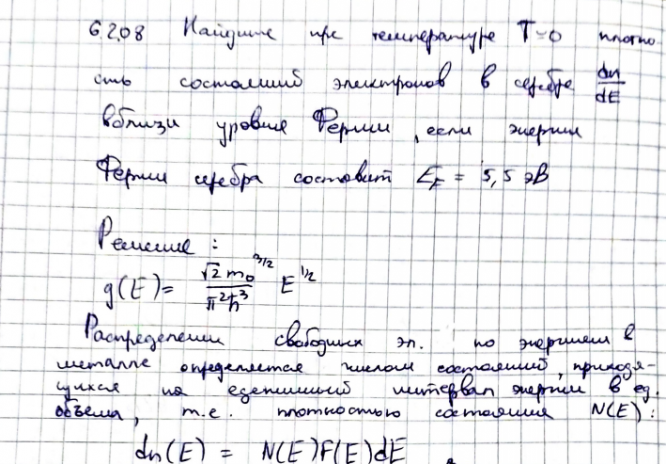 6.208 Найдите при температуре T=0 плотно
сть состояний электронов в серебре dn/dE
вблизи уровня Ферми, если энергия
Ферми серебра составит E_F = 5,5 эВ
Решение :
g(E)= √2 m₀^3/2 / π²ħ³ E^1/2
Распределение свободных эл. по энергиям в
металле определяется числом состояний, приходя-
щихся на единичный интервал энергии в ед.
объема, т.е. плотностью состояния N(E) :
dn(E) = N(E)F(E)dE